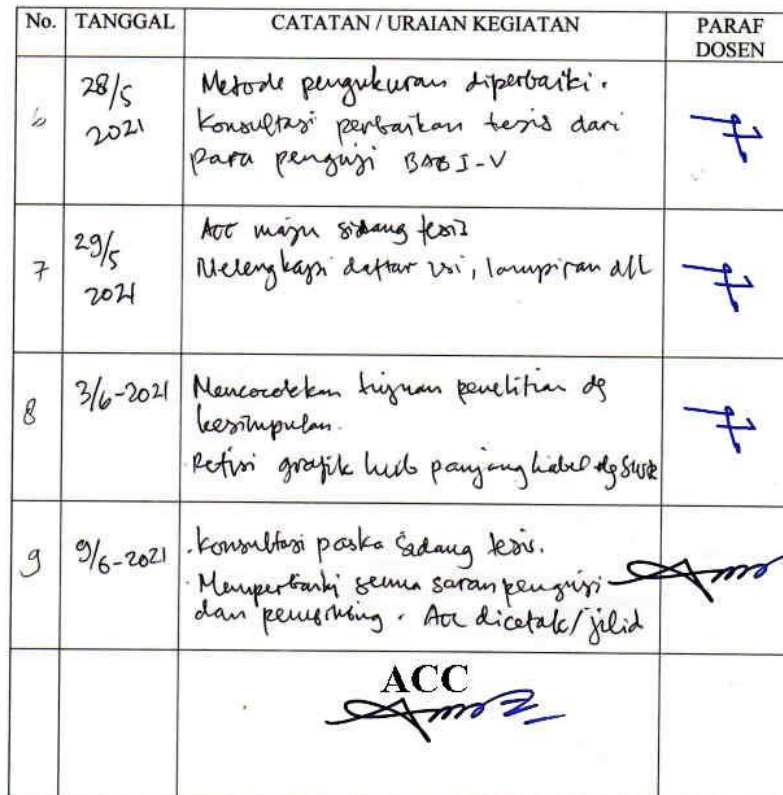 No. TANGGAL CATATAN / URAIAN KEGIATAN PARAF DOSEN
6 28/5 2021 Metode pengukuran diperbaiki.
Konsultasi perbaikan tesis dari
para penguji BAB I-V
7 29/5 2021 Acc maju sidang tesis
Melengkapi daftar isi, lampiran dll
8 3/6-2021 Mencocokkan tujuan penelitian dg
kesimpulan.
Refisi grafik hub panjang kabel dg SWR
9 9/6-2021 . Konsultasi paska sidang tesis.
. Memperbaiki semua saran penguji
dan pembimbing. Acc dicetak/jilid
ACC